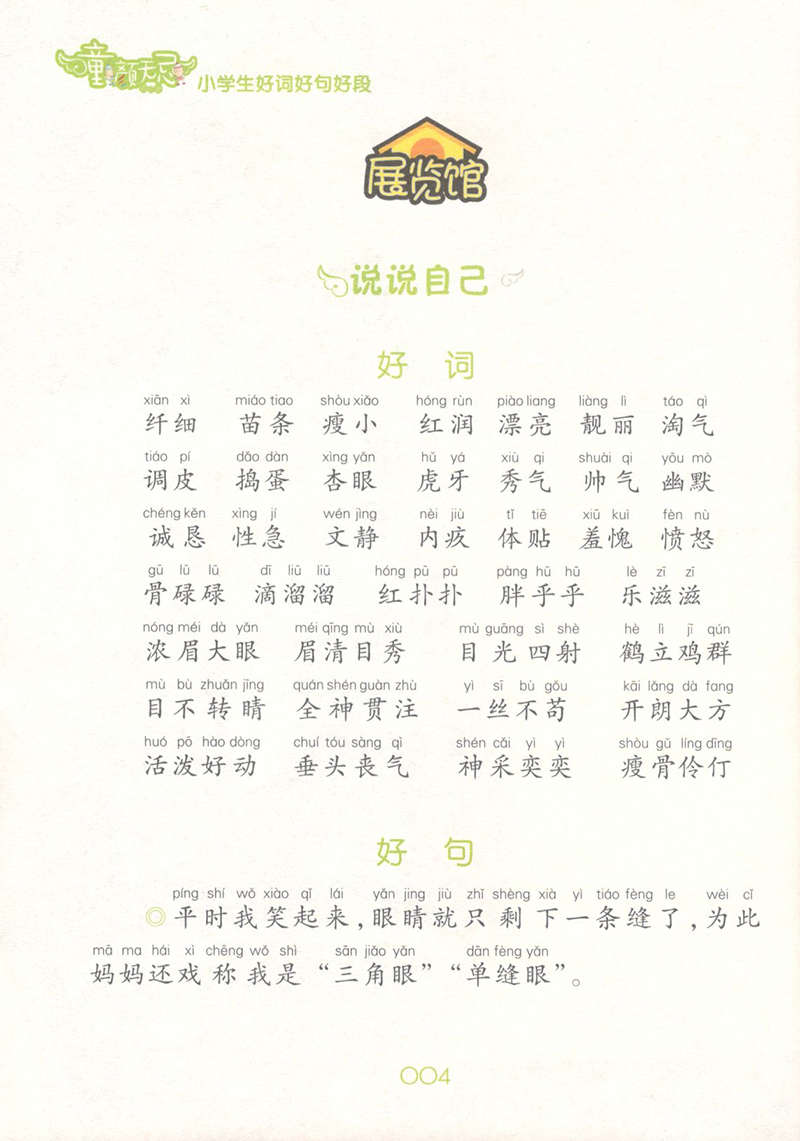 童颜无忌 小学生好词好句好段
展览馆
说说自己
好 词
xiān xì miáo tiao shòu xiǎo hóng rùn piào liang liàng lì táo qì
纤细 苗条 瘦小 红润 漂亮 靓丽 淘气
tiáo pí dǎo dàn xìng yǎn hǔ yá xiù qi shuài qi yōu mò
调皮 捣蛋 杏眼 虎牙 秀气 帅气 幽默
chéng kěn xìng jí wén jìng nèi jiù tǐ tiē xiū kuì fèn nù
诚恳 性急 文静 内疚 体贴 羞愧 愤怒
gū lū lū dī liū liū hóng pū pū pàng hū hū lè zī zī
骨碌碌 滴溜溜 红扑扑 胖乎乎 乐滋滋
nóng méi dà yǎn méi qīng mù xiù mù guāng sì shè hè lì jī qún
浓眉大眼 眉清目秀 目光四射 鹤立鸡群
mù bù zhuǎn jīng quán shén guàn zhù yì sī bù gǒu kāi lǎng dà fang
目不转睛 全神贯注 一丝不苟 开朗大方
huó pō hào dòng chuí tóu sàng qì shén cǎi yì yì shòu gǔ líng dīng
活泼好动 垂头丧气 神采奕奕 瘦骨伶仃
好 句
píng shí wǒ xiào qǐ lái yǎn jing jiù zhǐ shèng xià yì tiáo fèng le wèi cǐ
◎平时我笑起来,眼睛就只剩下一条缝了,为此
mā ma hái xì chēng wǒ shì sān jiǎo yǎn dān fèng yǎn
妈妈还戏称我是“三角眼”“单缝眼”。
004